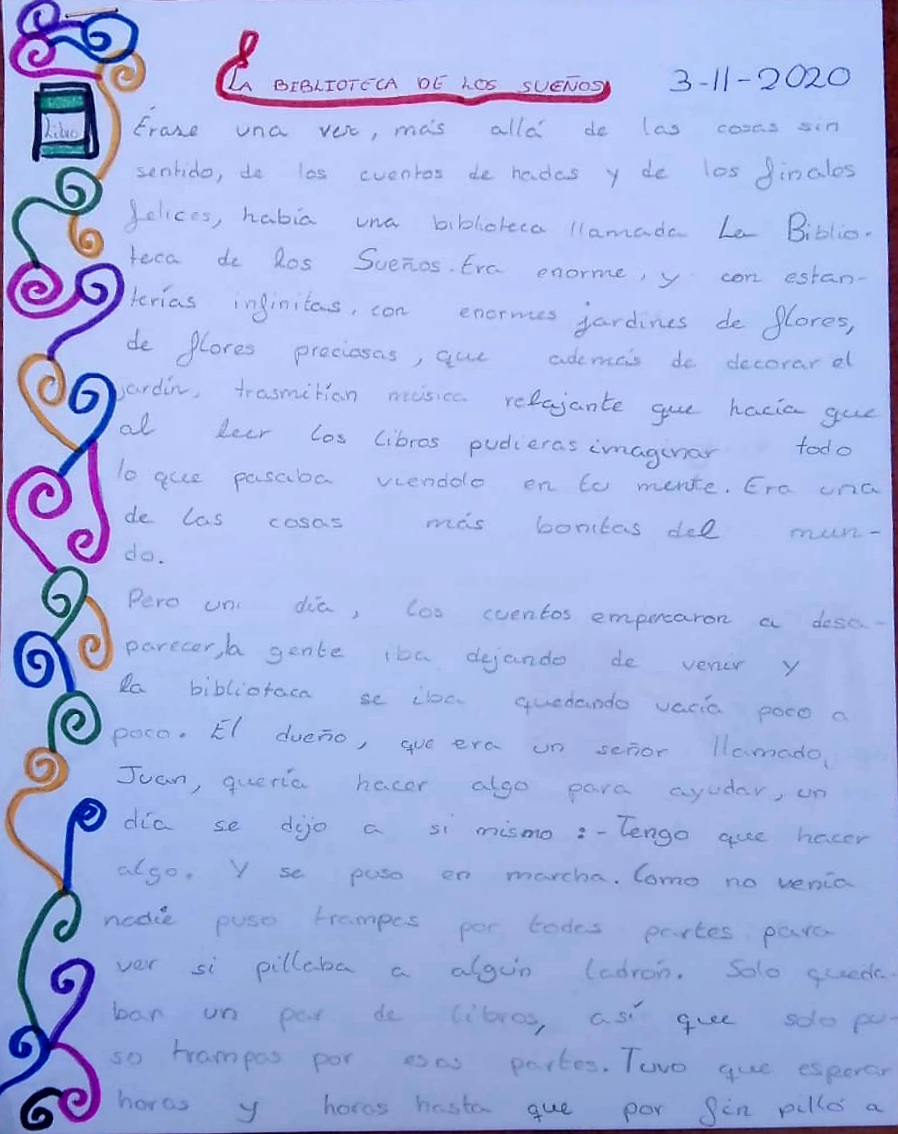 LA BIBLIOTECA DE LOS SUEÑOS 3-11-2020
Libro
Érase una vez, más allá de las cosas sin
sentido, de los cuentos de hadas y de los finales
felices, había una biblioteca llamada La Biblio-
teca de los Sueños. Era enorme, y con estan-
terías infinitas, con enormes jardines de flores,
de flores preciosas, que además de decorar el
jardín, trasmitían música relajante que hacía que
al leer los libros pudieras imaginar todo
lo que pasaba viendolo en tu mente. Era una
de las cosas más bonitas del mun-
do.
Pero un día, los cuentos empezaron a desa-
parecer, la gente iba dejando de venir y
la bibliotaca se iba quedando vacía poco a
poco. El dueño, que era un señor llamado
Juan, quería hacer algo para ayudar, un
día se dijo a si mismo: -Tengo que hacer
algo. Y se puso en marcha. Como no venía
nadie puso trampas por todas partes para
ver si pillaba a algún ladrón. Solo queda-
ban un par de libros, así que solo pu-
so trampas por esas partes. Tuvo que esperar
horas y horas hasta que por fin pilló a